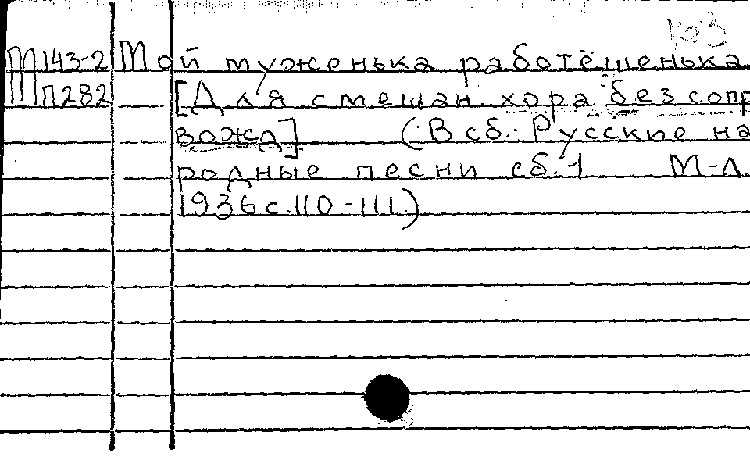 103
М143-2 Мой муженька работёшенька
М П282 [Для смешан хора без сопр
вожд] (В сб. Русские на
родные песни сб. 1 М-Л.
1936 с. 110-111.)